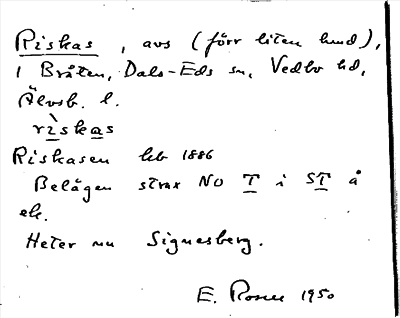 Riskas, avs (förr liten lund),
i Bråten, Dals-Eds sn, Vedbo hd,
Älvsb. l.
rìskas
Riskasen hb 1886
Belägen strax NO T i ST å
ek.
Heter nu Signesberg.
E. Rosell 1950